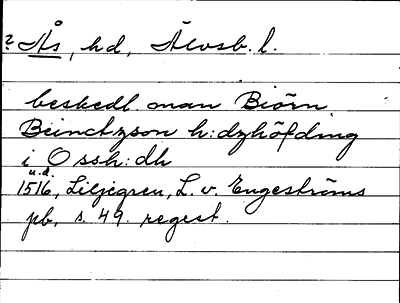 ? Ås, hd, Älvsb. l.
beskedl. man Biörn
Beinctzson h:dzhöfding
i Ossh:dh
u.d.
1516, Liljegren, L. v. Engeströms
pb, s. 49. regest.